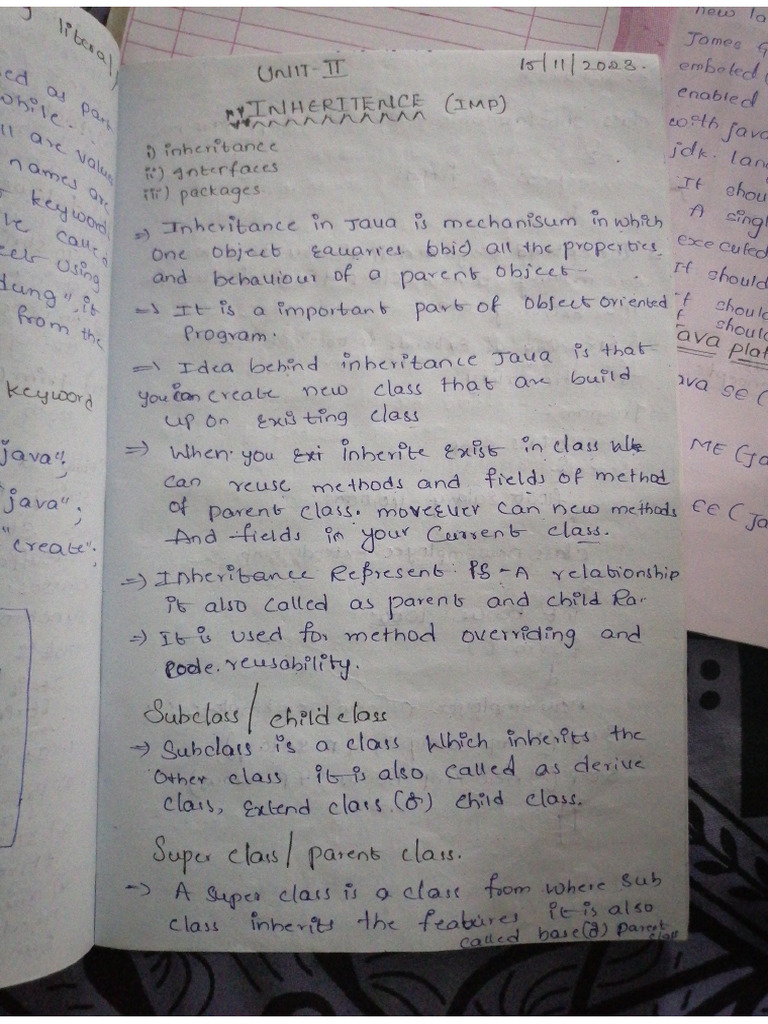 literal
ed as part
while.
ll are value
names are
keyword
called
using
it
from the
keyword
java";
"java";
"create";
UNIIT-II
15/11/2023.
INHERITENCE (IMP)
i) inheritance
ii) Interfaces
iii) packages.
=> Inheritance in Java is mechanisum in which
one object all the properties
and behaviour of a parent object
=> It is a important part of object oriented
program.
=> Idea behind inheritance Java is that
you can create new class that are build
up on existing class
=> When you exi inherite exist in class
can reuse methods and fields of method
of parent class. moreever can new methods
And fields in your current class.
=> Inheritance Represent IS-A relationship
it also called as parent and child Ra.
=> It is used for method overriding and
code reusability.
Subclass / child class
=> Subclass is a class which inherits the
other class it is also called as derive
class, extend class (or) child class.
Super class / parent class.
=> A super class is a class from where sub
class inherits the features it is also
called base (or) parent
class
new la
James G
embeted
enabled
with java
jdk. lan
It shou
A singl
executed
It should
It should
should
Java plat
ava SE (
ME (Ja
EE (Ja